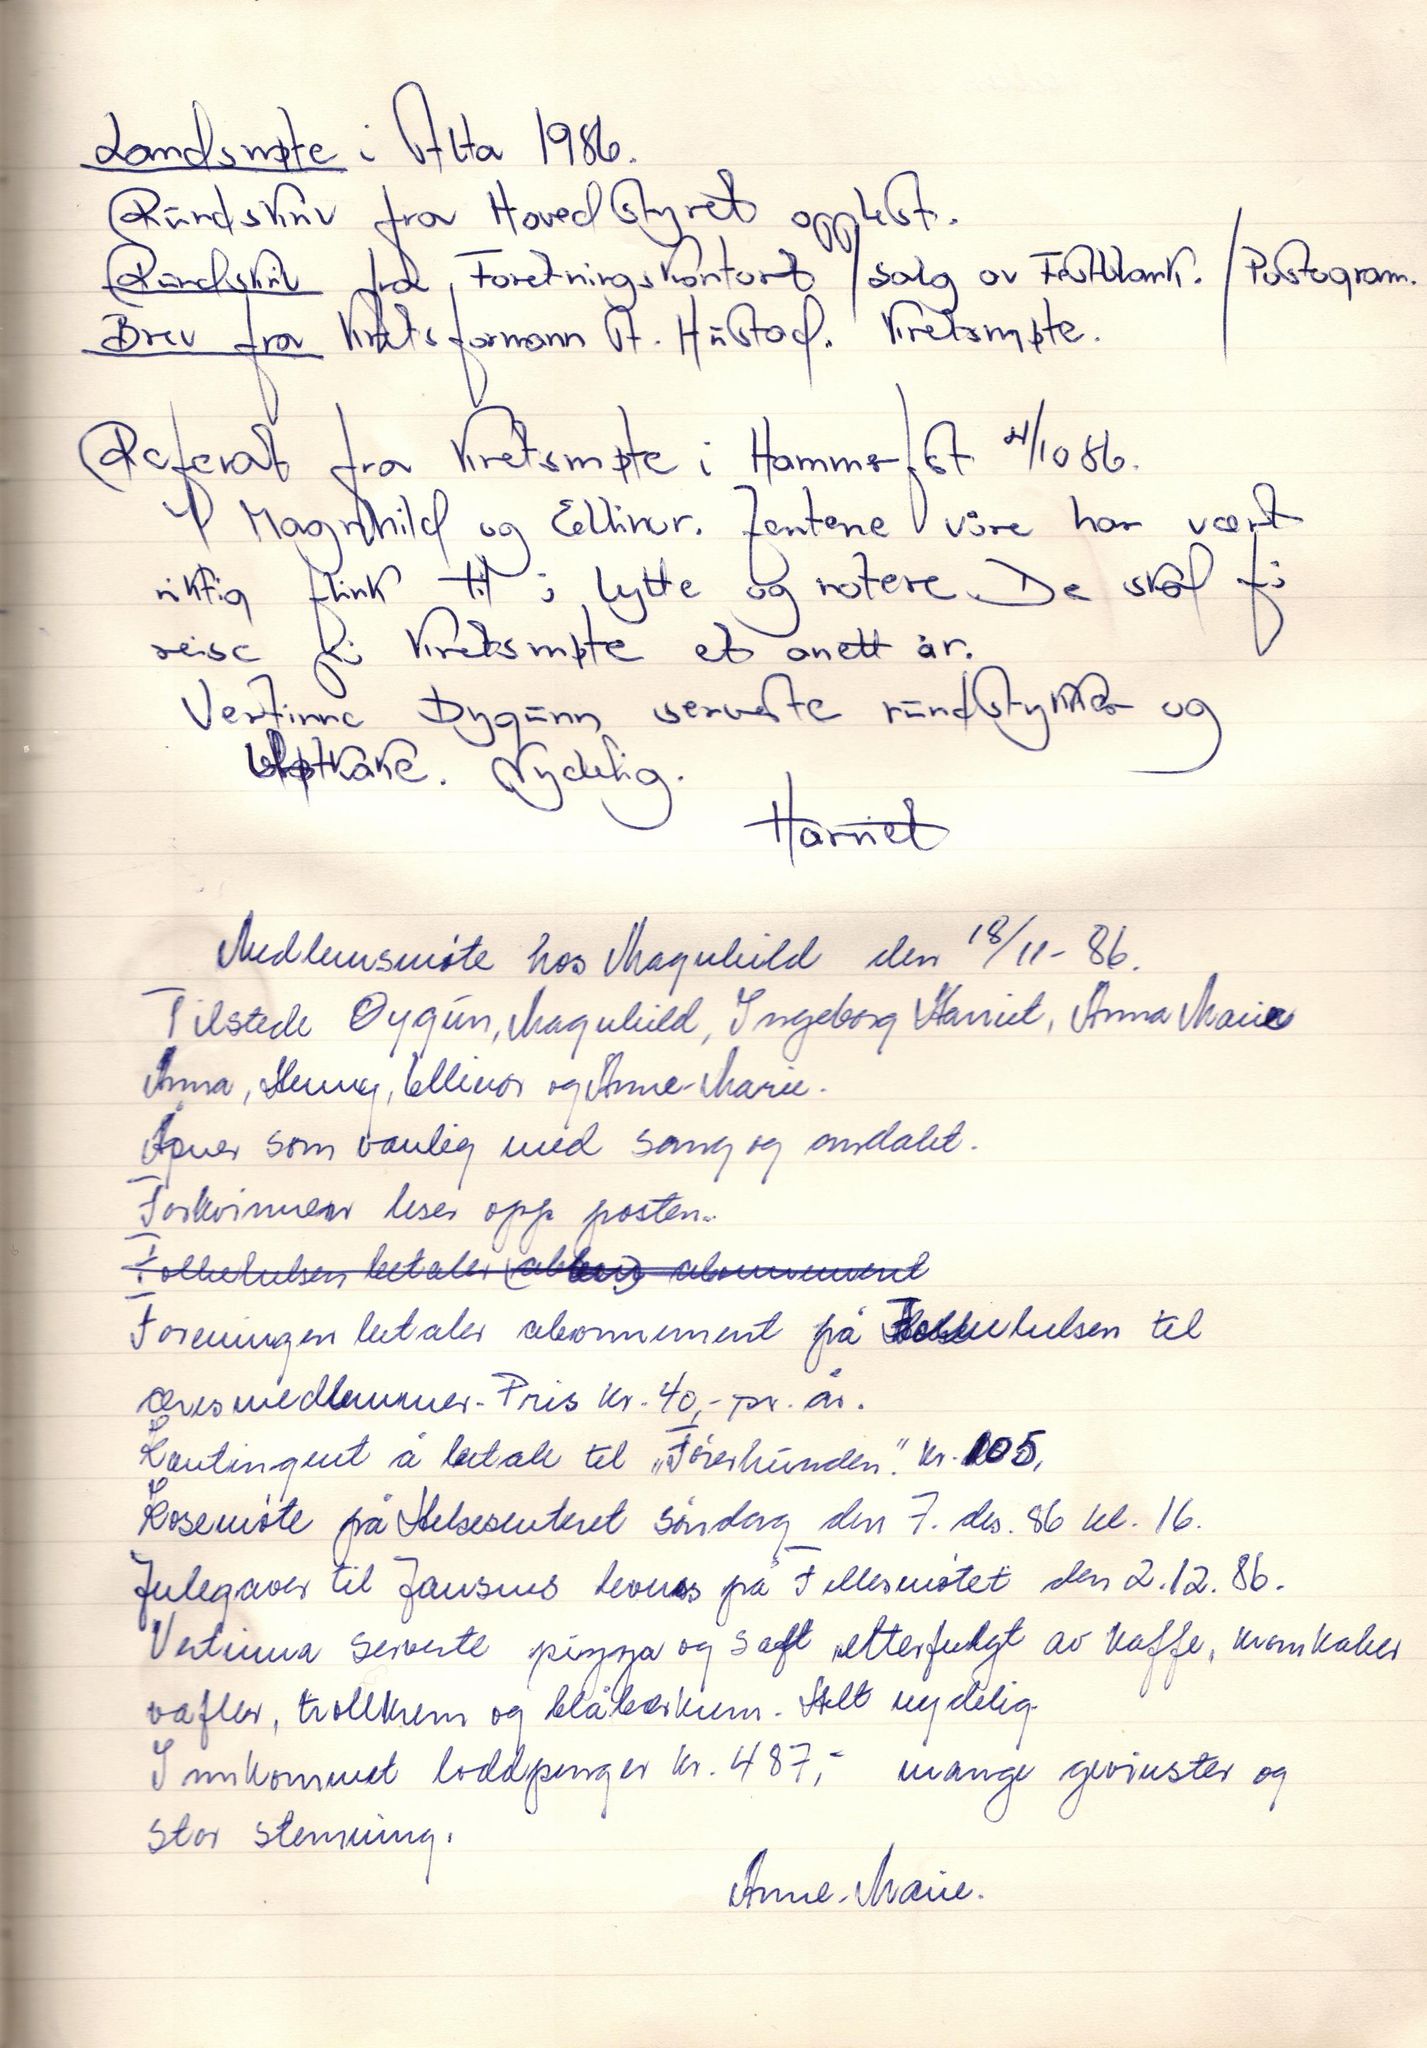 Landsmøte i Alta 1986.
Rundskriv fra Hovedstyret opplest.
Rundskriv fra Foretningskontoret / salg av Festblank. / Postogram.
Brev fra Kretsformann A. Hustad. Kretsmøte.
Referat fra Kretsmøte i Hammerfest /10 86.
Magnhild og Ellinor. Jentene våre har vært
riktig flink til å lytte og notere. De skal få
reise på Kretsmøte et anett år.
Vertinne Oygunn serverte rundstykker og
bløtkake. Nydelig.
Harriet
Medlemsmöte hos Magnhild den 18/11-86.
Tilstede Oygün, Magnhild, Ingeborg Harriet, Anna Marie
Anna, Henny, Ellinor og Anne-Marie.
Åpner som vanlig med sang og andakt.
Forkvinnen leser opp posten.
Folkehelsen betaler abonnement
Foreningen betaler abonnement på Folkehelsen til
æresmedlemmer. Pris kr. 40,- pr. år.
Kontingent å betale til „Förerhunden." kr. 105,
Kosemöte på Helsesenteret söndag den 7. des. 86 kl. 16.
Julegaver til Jansnes leveres på Fellesmötet den 2.12.86.
Vertinna serverte pizza og saft etterfulgt av kaffe, kremkaker
vafler, trollkrem og blåbærkrem. Alt nydelig.
Innkommet loddpenger kr. 487,- mange gevinster og
stor stemning.
Anne-Marie.